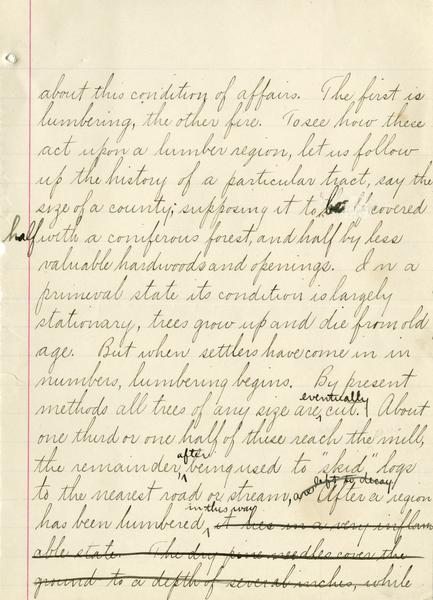 about this condition of affairs. The first is
lumbering, the other fire. To see how these
act upon a lumber region, let us follow
up the history of a particular tract, say the
size of a county; supposing it to be covered
half with a coniferous forest, and half by less
valuable hardwoods and openings. In a
primeval state its condition is largely
stationary, trees grow up and die from old
age. But when settlers have come in in
numbers, lumbering begins. By present
methods all trees of any size are eventually cut. About
one third or one half of these reach the mill,
the remainder, after being used to "skid" logs
to the nearest road or stream, are left to decay. After a region
has been lumbered in this way, it lies in a very inflam
able state. The dry pine needles cover the
ground to a depth of several inches, while